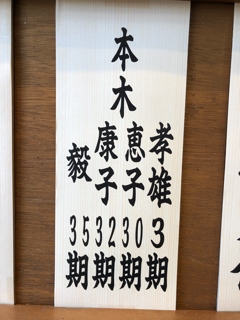 本木
孝雄 3期
恵子 30期
康子 32期
毅 35期